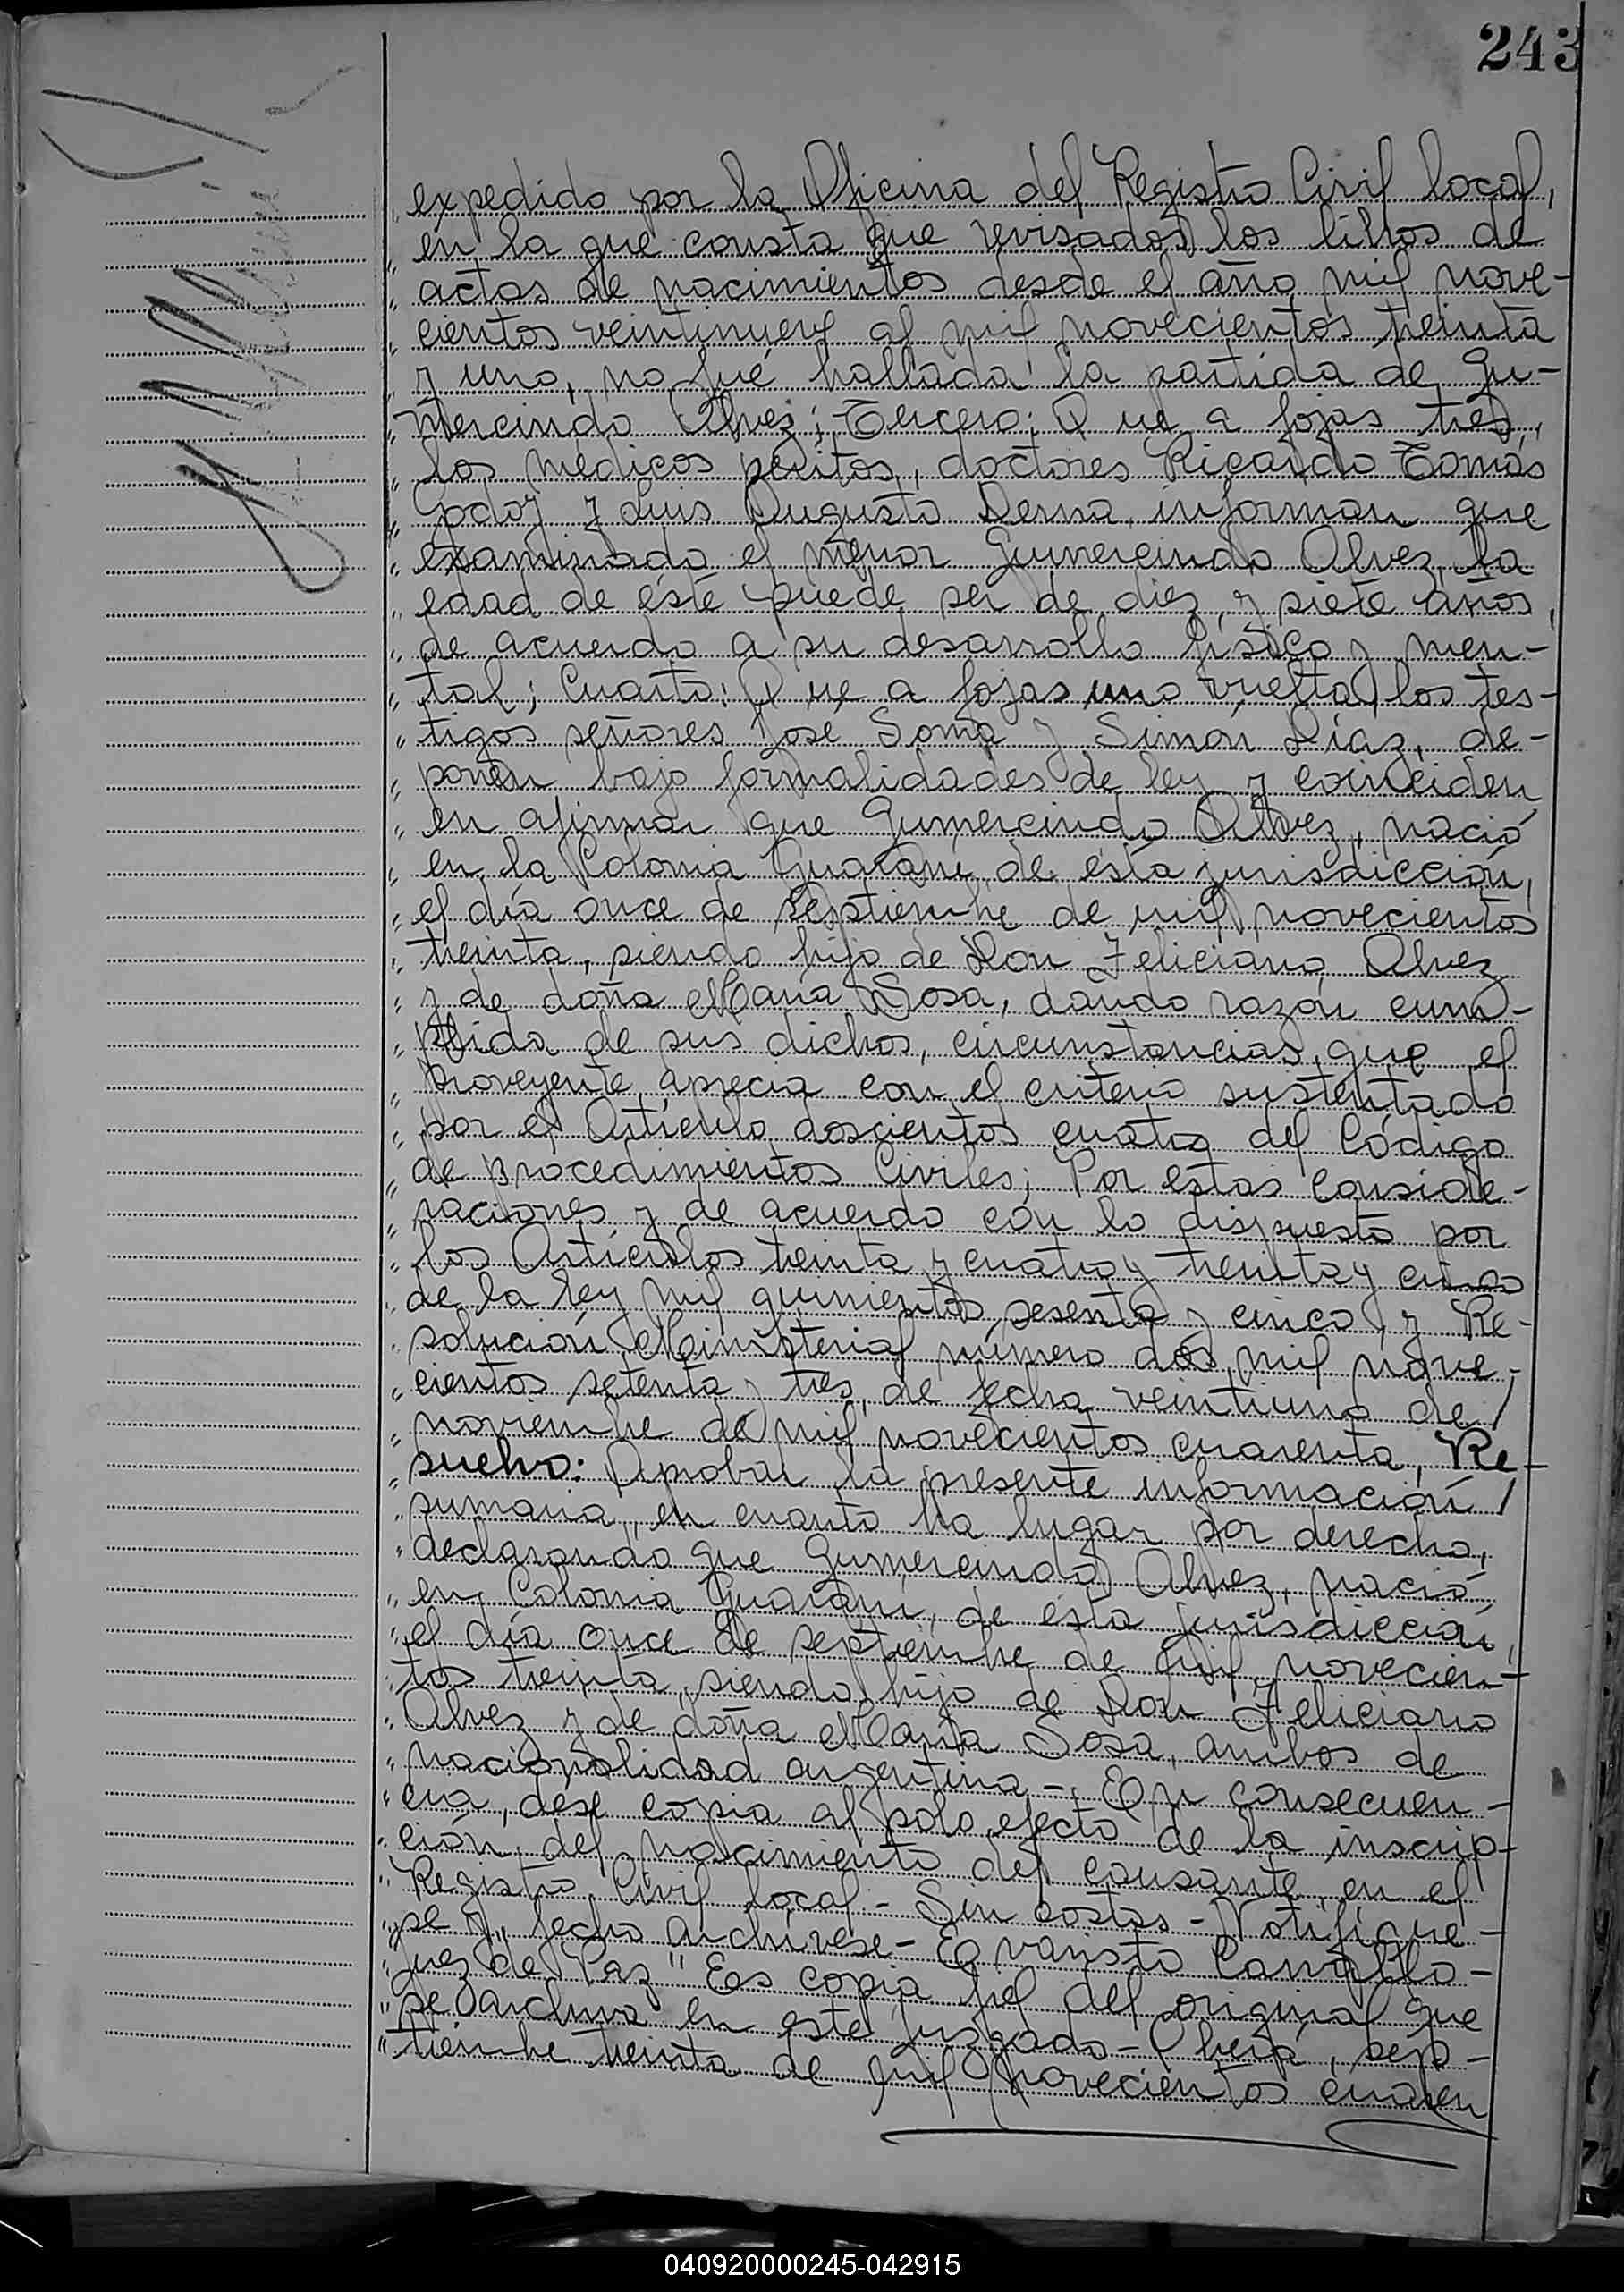 243
expedido por la Oficina del Registro Civil local,
" en la que consta que revisados los libros de
" actas de nacimientos desde el año mil nove-
" cientos veintinueve al mil novecientos treinta
" y uno, no fué hallada la partida de Gu-
" mercindo Alvez; Tercero: Que a fojas tres,
" los médicos peritos, doctores Ricardo Tomás
" Godoy y Luis Augusto Derna, informan que
" examinado el menor Gumercindo Alvez, la
" edad de éste puede ser de diez y siete años,
" de acuerdo a su desarrollo físico y men-
" tal; Cuarto: Que a fojas uno vuelta, los tes-
" tigos señores José Soma y Simón Díaz, de-
" ponen bajo formalidades de ley y coinciden
" en afirmar que Gumercindo Alvez, nació
" en la Colonia Guaraní, de ésta jurisdicción,
" el día once de septiembre de mil novecientos
" treinta, siendo hijo de Don Feliciano Alvez
" y de doña María Sosa, dando razón cum-
" plida de sus dichos, circunstancias, que el
" proveyente aprecia con el criterio sustentado
" por el Artículo doscientos cuatro del Código
" de procedimientos Civiles; Por estas conside-
" raciones y de acuerdo con lo dispuesto por
" los Artículos treinta y cuatro y treinta y cinco
" de la ley mil quinientos sesenta y cinco, y Re-
" solución Ministerial número dos mil nove-
" cientos setenta y tres, de fecha veintiuno de/
" noviembre de mil novecientos cuarenta, Re-
" suelvo: Aprobar la presente información/
" sumaria, en cuanto ha lugar por derecho,
" declarando que Gumercindo Alvez, nació
" en Colonia Guaraní, de ésta jurisdicción,
" el día once de septiembre de mil novecien-
" tos treinta, siendo hijo de Don Feliciano
" Alvez y de doña María Sosa, ambos de
" nacionalidad argentina - En consecuen-
" cia, dese copia al solo efecto de la inscrip-
" ción del nacimiento del causante, en el
" Registro Civil local - Sin costas - Notifíque-
" se y, fecho archívese - Evaristo Carvallo -
" Juez de Paz" Es copia fiel del original que
" se archiva en este juzgado - Oberá, sep-
" tiembre treinta de mil novecientos cuaren
040920000245-042915